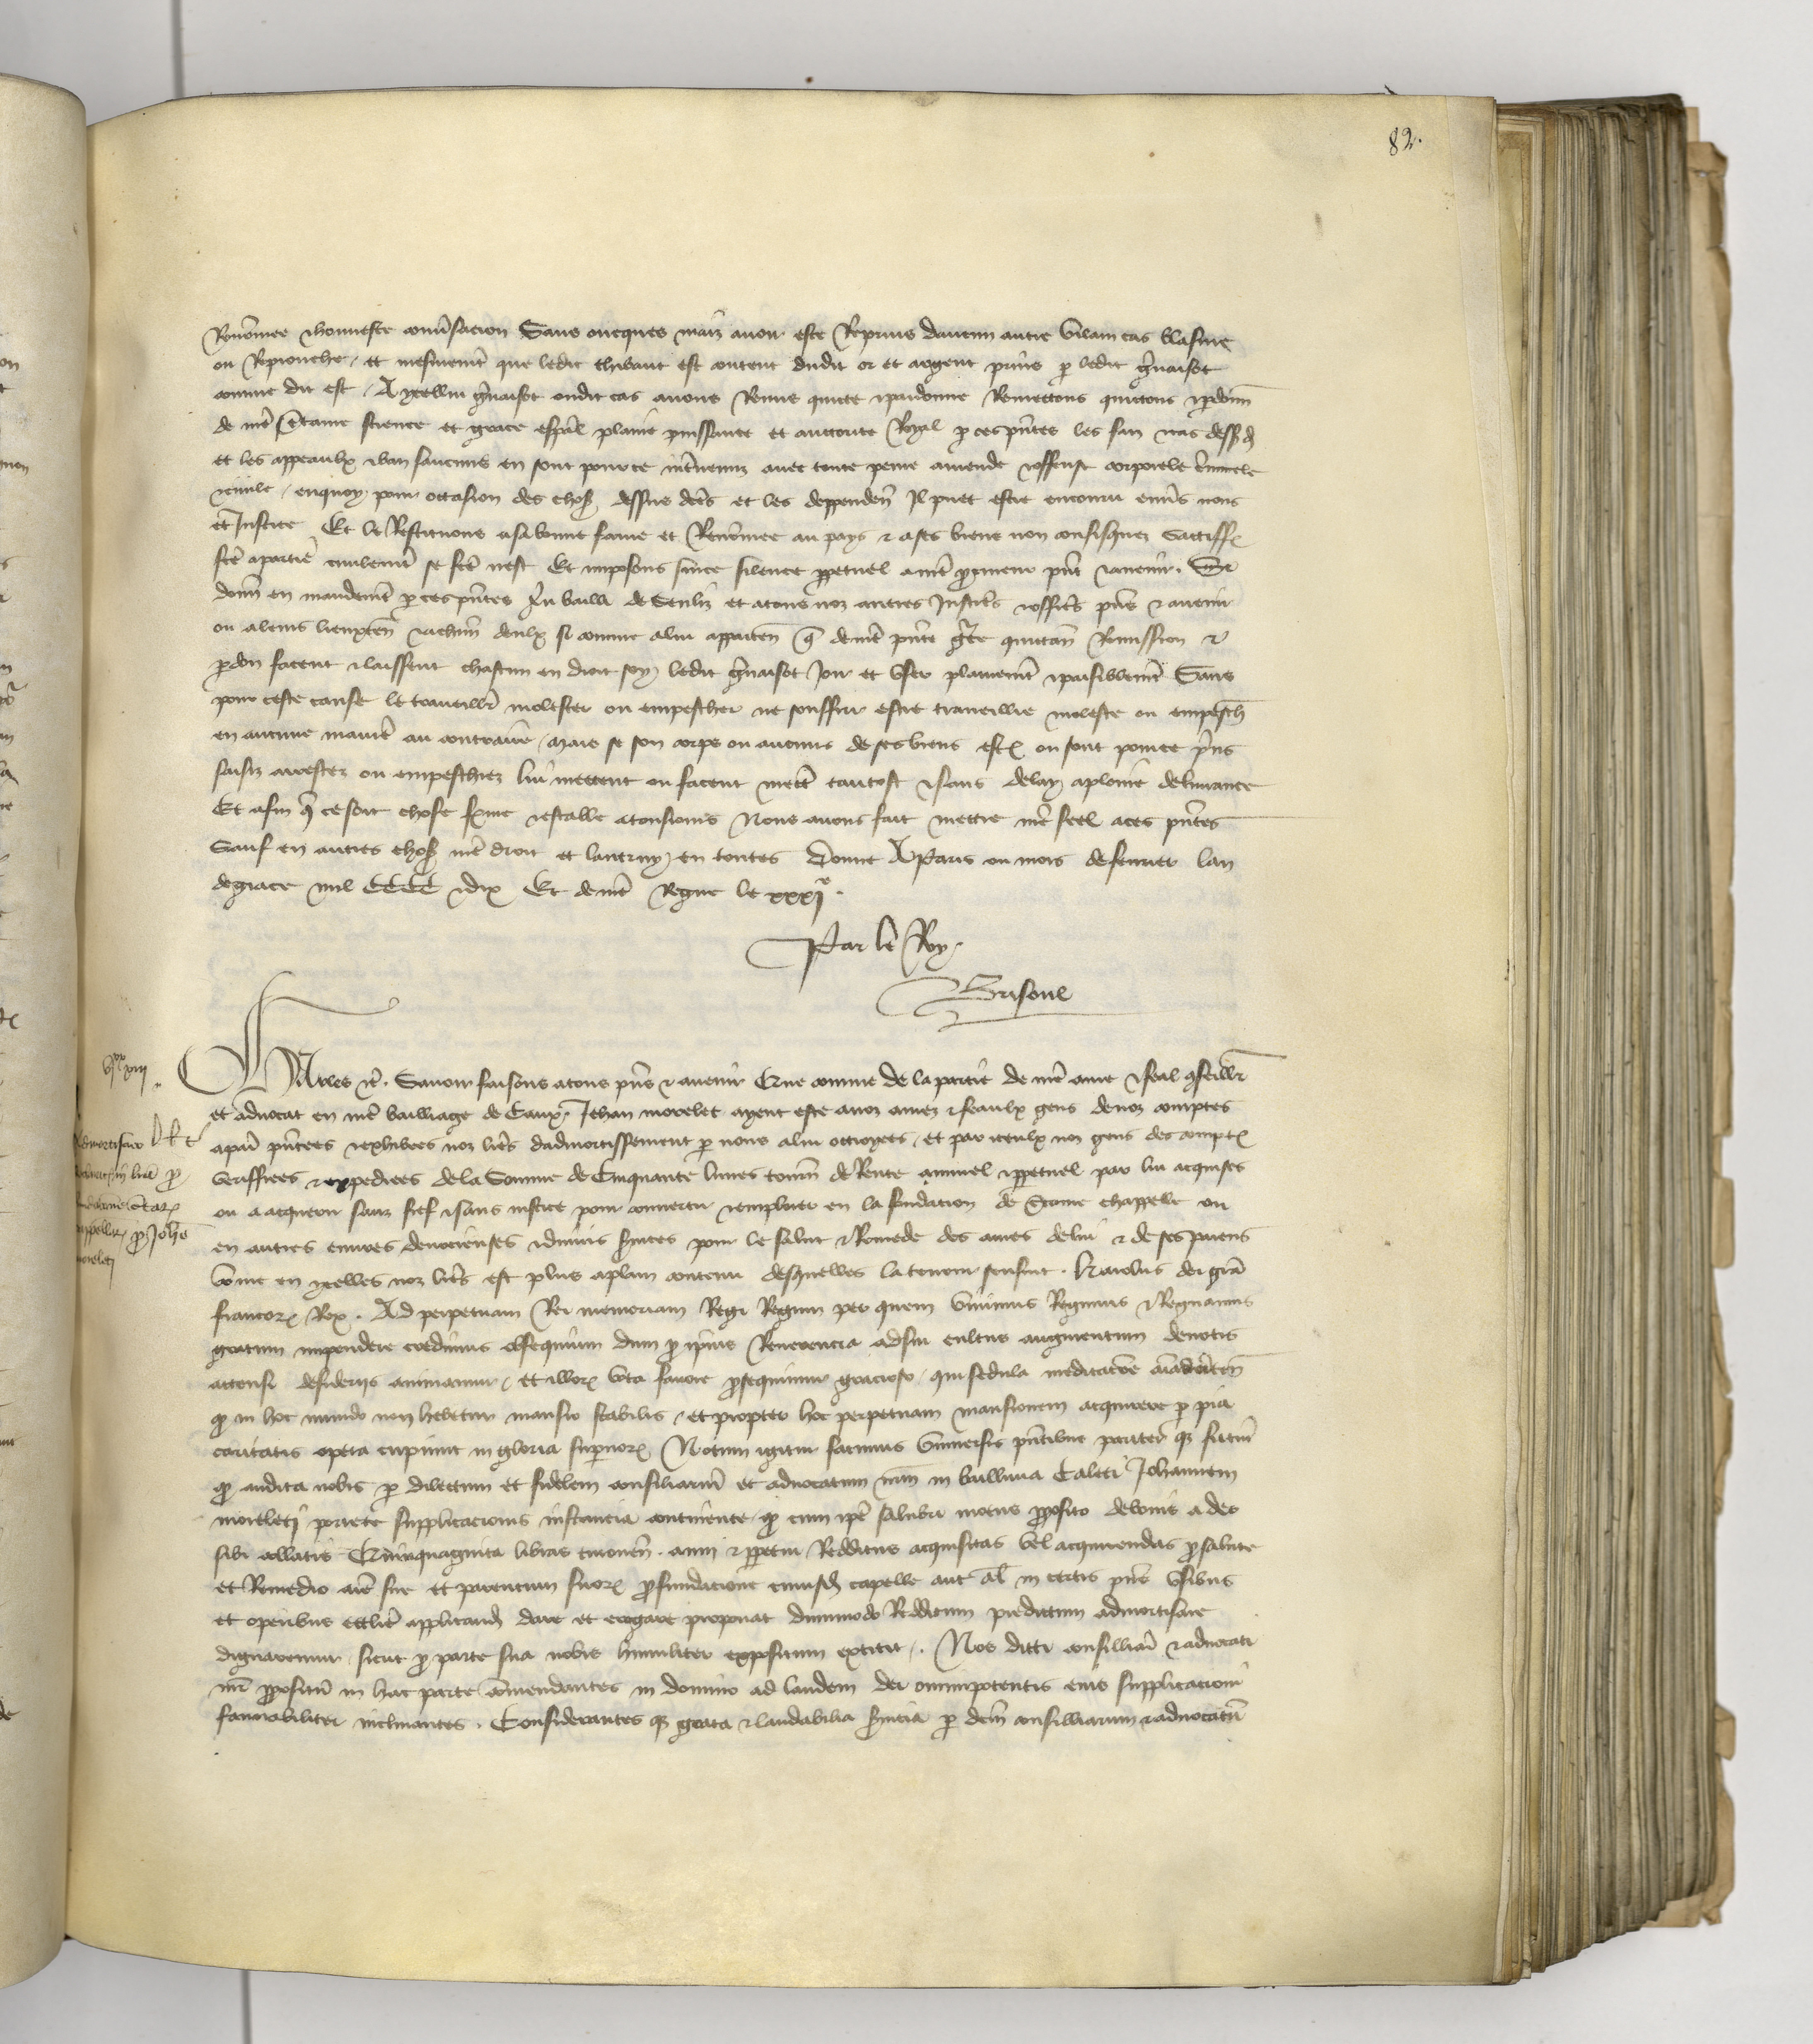 82.
Renōmee & honneste conūsacion Sans oncques maiz avoir este Reprins daucun autre vilain cas blasme
ou Reprouche, et mesmemēt que ledit thibaut est content dudit or et argent prīns p ledit Gvaisot
comme dit est, A ycellui Gvaisot oudit cas avons Remis quicte & pardonne Remettons quictons & pdonnō
de nrē c̄taine science et grace esp̄al plaine puissance et auctorite Royal p ces pn̄tes les fait cas dess d
et les appeaulx & ban saucuns en sont pour ce intvenuz avec toute peine amende & offense corporele c̄iminele
& civile, enquoy pour occasion des choses dessus dctēs et les deppendēn Il puet estre encouru envs nous
et Justice Et le Restituons a sa bonne fame et Renōmee au pays & a ses biens non confisquez Sattiffō
fctē a partie civilemēt se fctē nest Et imposons sur ce silence ppetuel a nrē pcureur pn̄t & avenir. Si
donnō en mandemēt p ces pn̄tes Au bailli de Senliz et a tous noz autres Justicēs & officēs pn̄s & avenir
ou a leurs lieuxtenn̄ & a chūn deulx si comme a lui apparten q̄ de nrē pn̄te grac̄e quictan̄ Remission &
pdon facent & laissent chascun en droit soy ledit Gvaisot Joir et user plainemēt & paisiblemēt Sans
pour ceste cause le travaillr̄ molester ou empescher ne souffrir estre travaillie moleste ou empesch̄
en aucune manie au contraire, mais se son corps ou aucuns de ses biens est ou sont pour ce p̄ns
saisiz arrestez ou empeschiez lui mettent ou facent mettr̄ tantost & sans delay a plaine delivrance
Et afin q̄ ce soit chose fme & estable a tousioūrs Nous avons fait mettre nrē seel a ces pn̄tes
Sauf en autres choses nrē droit et lautruy en toutes Donne A Paris ou mois de fevrier lan
de grace mil CCCC & dix Et de nrē Regne le xxxie.
Par le Roy
Brisoul
Charles &c̄. Savoir faisons a tous pn̄s & avenir Que comme de la partie de nrē ame & feal cōseillr̄
et advocat en nrē bailliage de Caux Jehan morelet ayent este a noz amez & feaulx gens de noz comptes
a paris pn̄tees & exhibees noz lrēs dadmortissement p nous a lui octroyees, et par iceulx noz gens des comptes
veriffiees & expediees de la Somme de Cinquante livres tourn̄ de Rente annuel & ppetuel par lui acquises
ou a acquerir sanz fief & sans justice pour convertir & emploier en la fundacion de Ctaine chappelle ou
en autres euvres devocieuses & divins Svices pour le salut & Remede des ames de lui & de ses parens
Cōme en ycelles noz lrēs est plus a plain contenu desquelles la teneur sensuit. Karolus dei grā
francorū Rex. Ad perpetuam Rei memoriam Regi Regum per quem vivimus Regimus & Regnamus
gratum impendere credimus obsequium dum p ipius Reverencia ad sui cultus augmentum devotis
accensi desideriis animamur, et illorū vota favore psequimur gracioso, qui sedula meditacōe aīadverten̄
q in hoc mundo non habetur mansio stabilis, et propter hoc perpetuam mansionem acquirere p pia
caritatis opera cupiunt in gloria supnorū Notum igitur facimus Universis pn̄tibus pariter q futurī
q audita nobis p dilectum et fidelem consiliariū et advocatum nrm̄ in baillivia Caleti Johannem
moreleti porrecte supplicacionis instancia continente, q cum ipē salubri motus pposito de bonis a deo
sibi collatis Quinquaginta libras turonēn. annui & ppetui Redditus acquisitas vel acquirendas p salute
et Remedio aīē sue et parentum suorū p fundacione cuiusd capelle aut al in certis piis usibus
et operibus ecclīe applicand dare et erogare proponat dummodo Redditum predictum admortisare
dignaremur, sicut p parte sua nobis humiliter expositum extitit. Nos dicti consilliarī & advocati
nrī ppositū in hac parte Cōmendantes in domino ad laudem dei omnipotentis eius supplicacioni
favorabiliter inclinantes. Considerantes q grata & laudabilia svicia p dcm̄ consilliarium & advocatū
Admortisacio L l t
p
chappelle p Joh̄e
moreleti